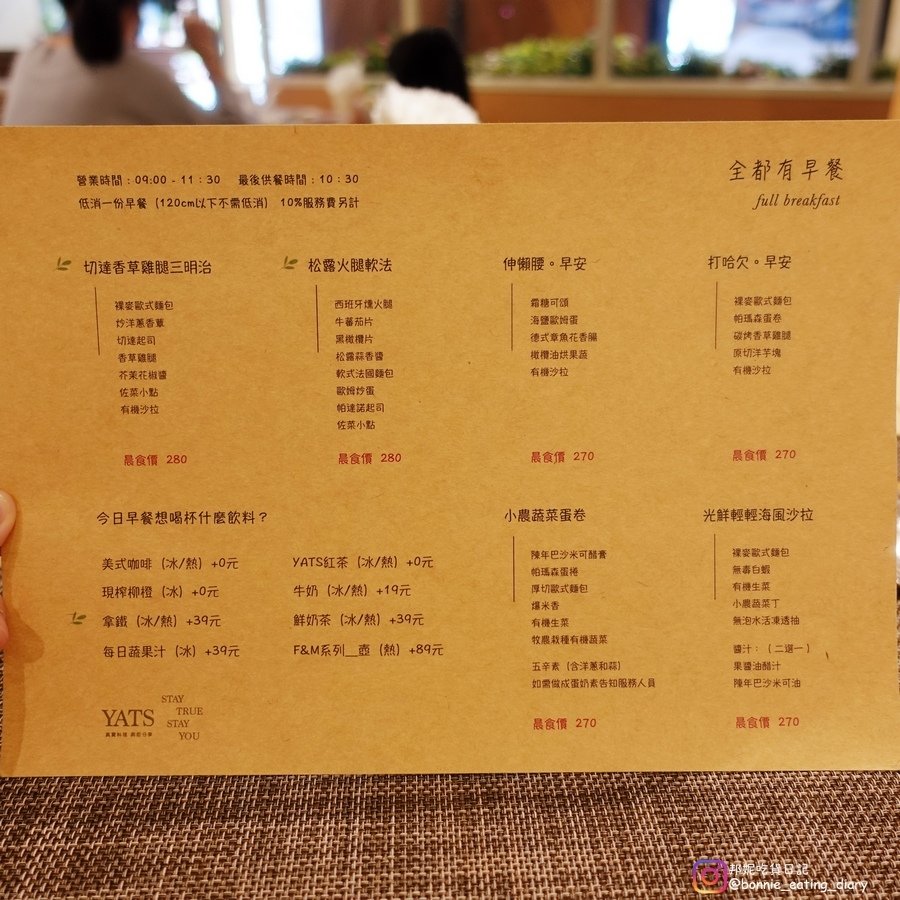 營業時間：09:00 - 11：30　最後供餐時間：10：30
低消一份早餐（120cm以下不需低消） 10%服務費另計
全都有早餐
full breakfast
切達香草雞腿三明治
裸麥歐式麵包
炒洋蔥香蕈
切達起司
香草雞腿
芥茉花椒醬
佐菜小點
有機沙拉
晨食價 280
松露火腿軟法
西班牙燻火腿
牛蕃茄片
黑橄欖片
松露蒜香醬
軟式法國麵包
歐姆炒蛋
帕達諾起司
佐菜小點
晨食價 280
伸懶腰。早安
霜糖可頌
海鹽歐姆蛋
德式章魚花香腸
橄欖油烘果蔬
有機沙拉
晨食價 270
打哈欠。早安
裸麥歐式麵包
帕瑪森蛋卷
碳烤香草雞腿
原切洋芋塊
有機沙拉
晨食價 270
今日早餐想喝杯什麼飲料？
美式咖啡（冰/熱）+0元
現榨柳橙（冰）+0元
拿鐵（冰/熱）+39元
每日蔬果汁（冰）+39元
YATS紅茶（冰/熱）+0元
牛奶（冰/熱）+19元
鮮奶茶（冰/熱）+39元
F&M系列__壺（熱）+89元
小農蔬菜蛋卷
陳年巴沙米可醋膏
帕瑪森蛋捲
厚切歐式麵包
爆米香
有機生菜
牧農栽種有機蔬菜
五辛素（含洋蔥和蒜）
如需做成蛋奶素告知服務人員
晨食價 270
光鮮輕輕海風沙拉
裸麥歐式麵包
無毒白蝦
有機生菜
小農蔬菜丁
無泡水活凍透抽
醬汁：（二選一）
果醬油醋汁
陳年巴沙米可油
晨食價 270
YATS
STAY
TRUE
STAY
YOU
邦妮吃貨日記
@bonnie_eating_diary